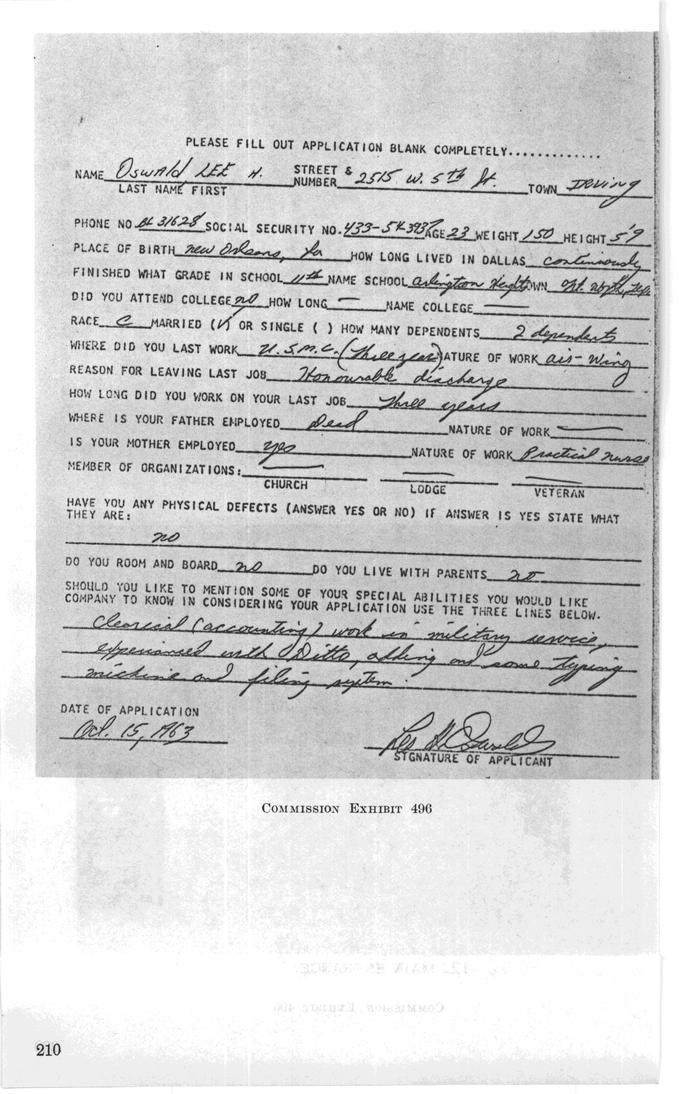 PLEASE FILL OUT APPLICATION BLANK COMPLETELY.............
NAME Oswald LEE H. STREET & NUMBER 2515 W. 5th St. TOWN Irving
LAST NAME FIRST
PHONE NO. Bl 31628 SOCIAL SECURITY NO. 433-54-3937 AGE 23 WEIGHT 150 HEIGHT 5'9
PLACE OF BIRTH New Orleans, La HOW LONG LIVED IN DALLAS continuously
FINISHED WHAT GRADE IN SCHOOL 11th NAME SCHOOL Arlington Heights OWN Ft. Worth, Tex
DID YOU ATTEND COLLEGE no HOW LONG — NAME COLLEGE —
RACE C MARRIED (✓) OR SINGLE ( ) HOW MANY DEPENDENTS 2 dependents
WHERE DID YOU LAST WORK U.S.M.C. (three years) ATURE OF WORK air-wing
REASON FOR LEAVING LAST JOB Honourable discharge
HOW LONG DID YOU WORK ON YOUR LAST JOB three years
WHERE IS YOUR FATHER EMPLOYED Dead NATURE OF WORK —
IS YOUR MOTHER EMPLOYED yes NATURE OF WORK Practical nurse
MEMBER OF ORGANIZATIONS: — — —
CHURCH LODGE VETERAN
HAVE YOU ANY PHYSICAL DEFECTS (ANSWER YES OR NO) IF ANSWER IS YES STATE WHAT
THEY ARE:
no
DO YOU ROOM AND BOARD no DO YOU LIVE WITH PARENTS no
SHOULD YOU LIKE TO MENTION SOME OF YOUR SPECIAL ABILITIES YOU WOULD LIKE
COMPANY TO KNOW IN CONSIDERING YOUR APPLICATION USE THE THREE LINES BELOW.
clearical (accounting) work in military service,
experianced with Ditto, adding and some typing
michine and filing system.
DATE OF APPLICATION
Oct. 15, 1963 Lee H Oswald
SIGNATURE OF APPLICANT
COMMISSION EXHIBIT 496
210